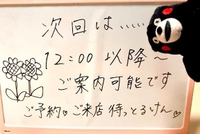 次回は……
12:00 以降～
ご案内可能です
ご予約♡ご来店 待っとるけん♡